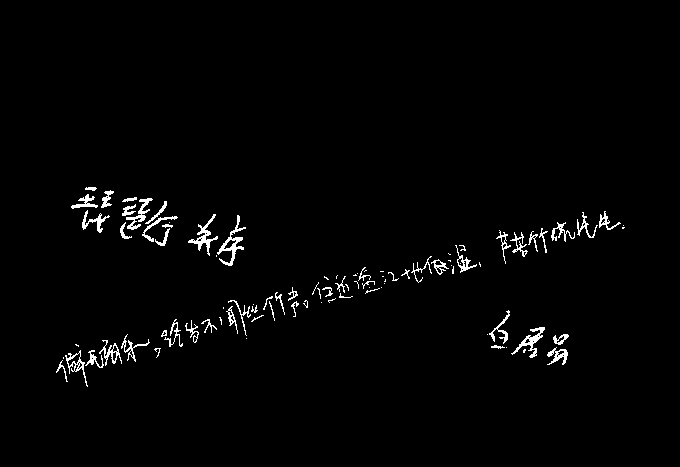 琵琶行 并序
僻无音乐，终岁不闻丝竹声。住近湓江地低湿，芦苦竹绕宅生.
白居易